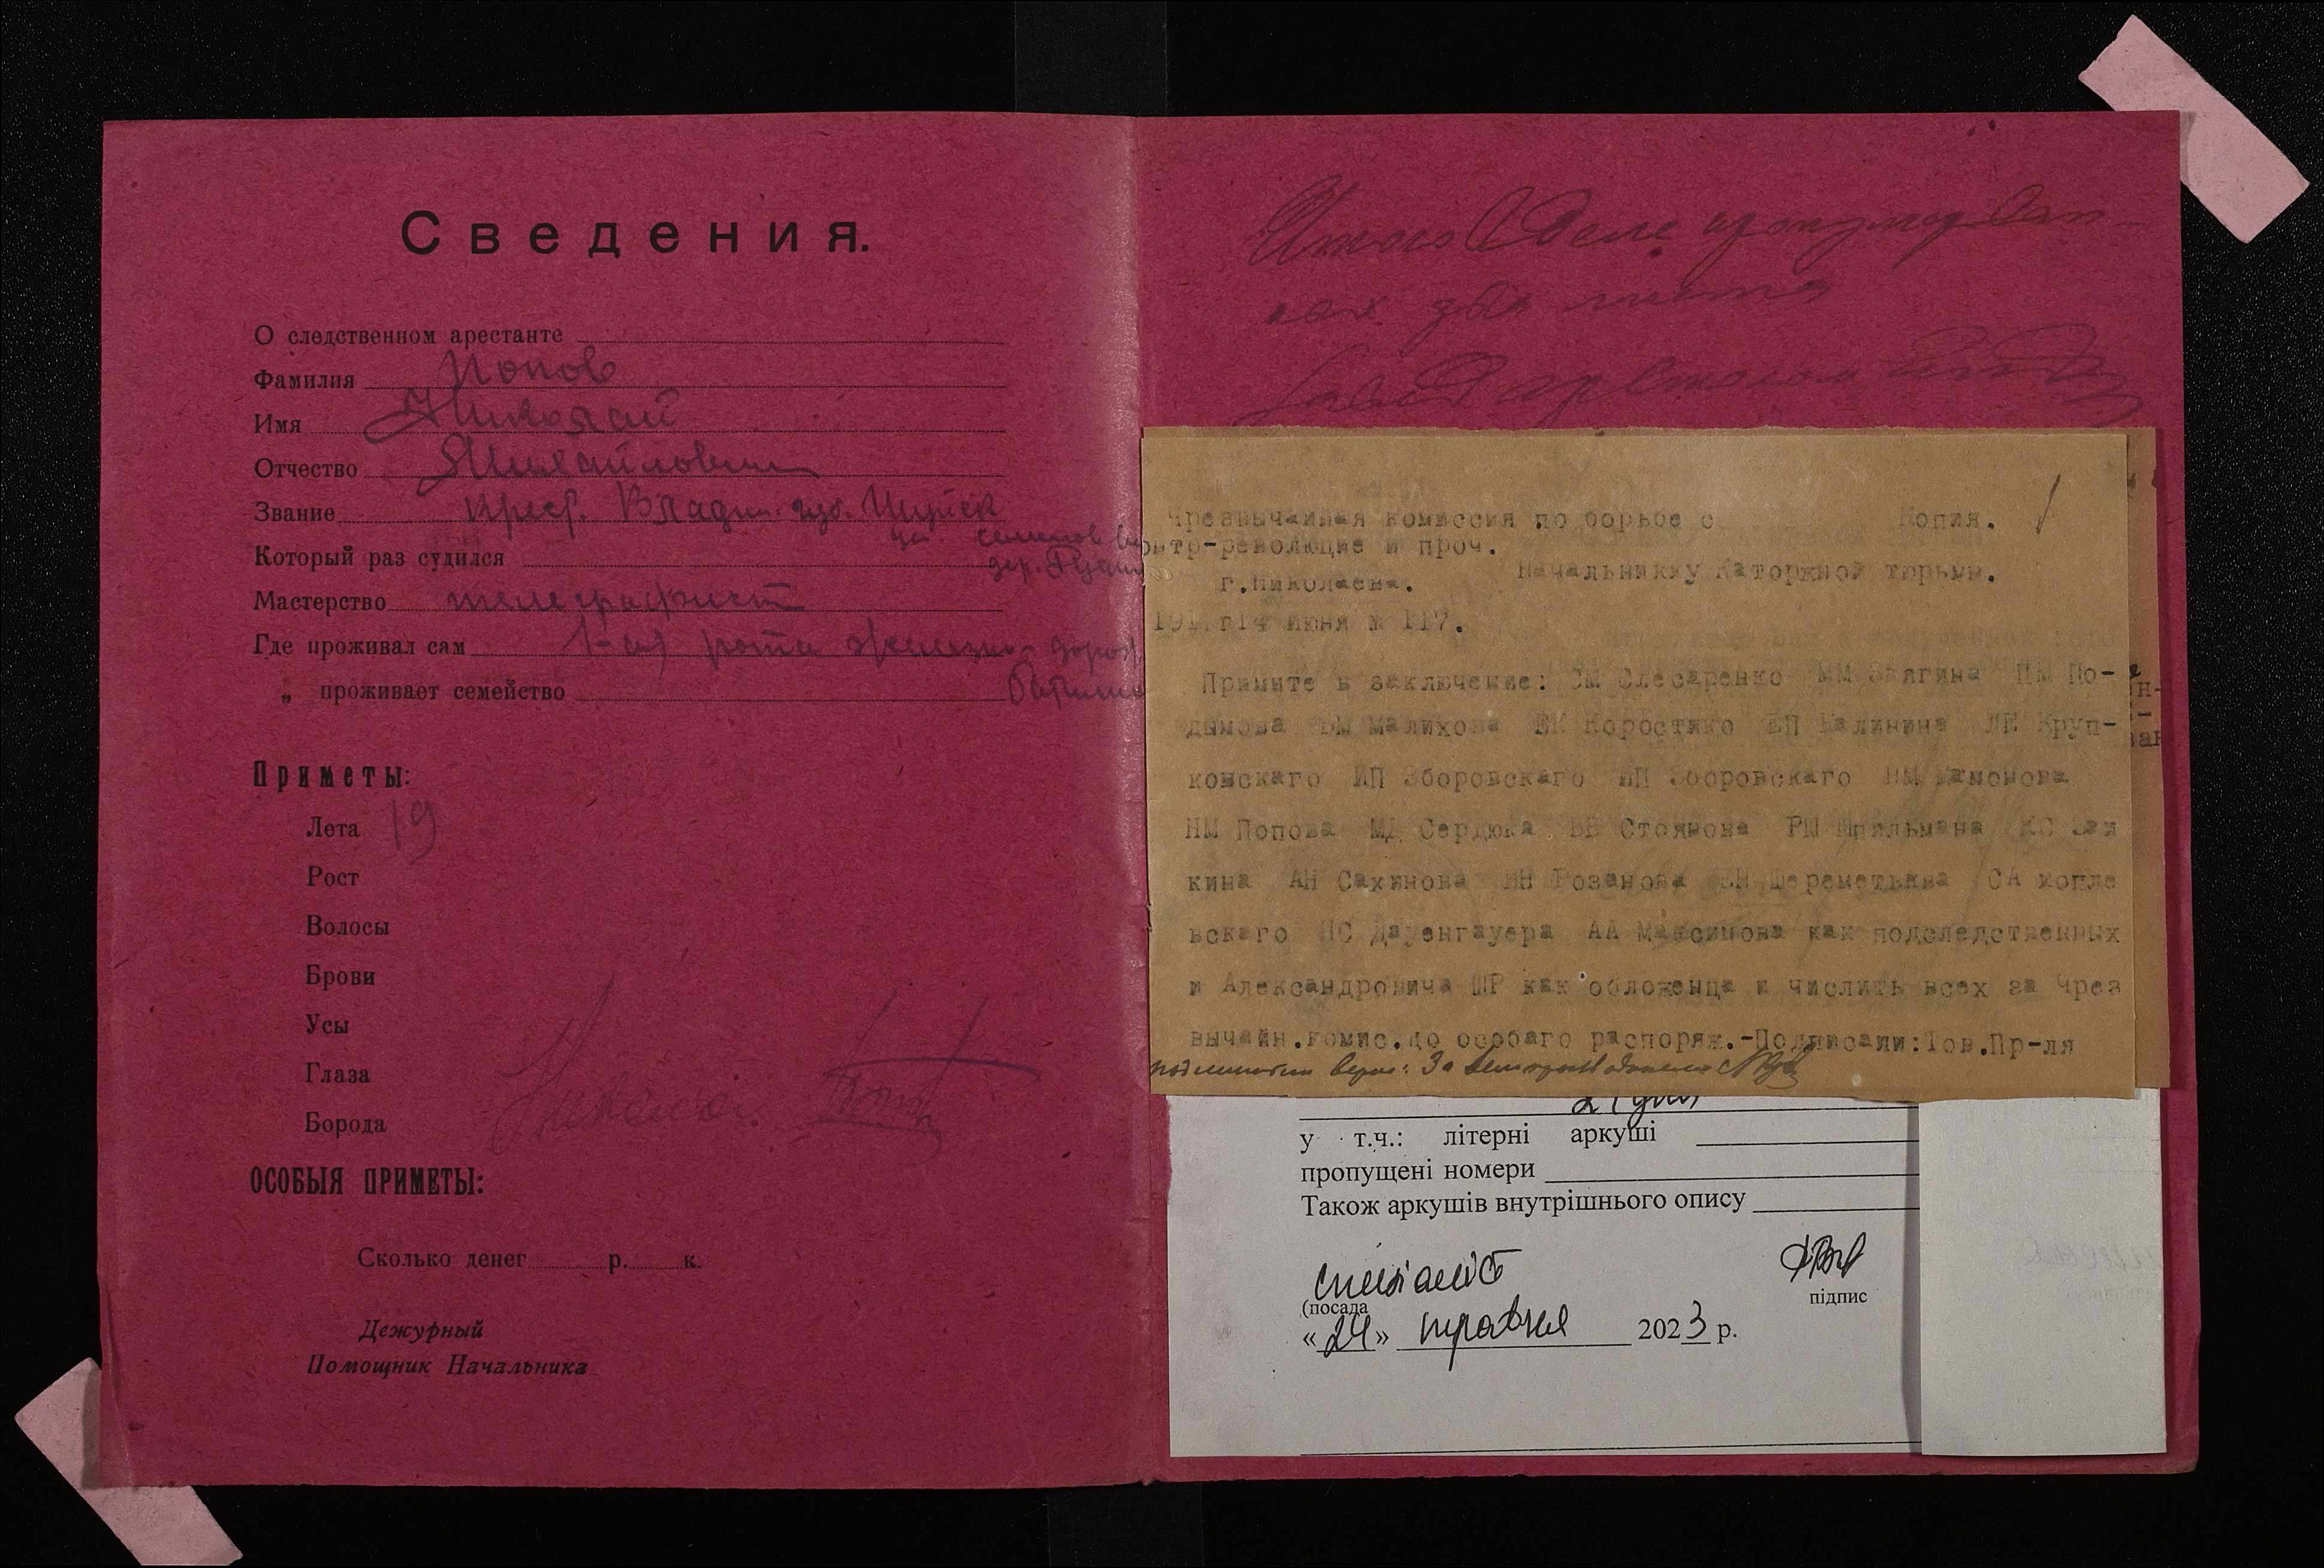 Сведения.
О следственном арестанте
Фамилия Попов
Имя Николай
Отчество Михайлович
Звание крест. Владим. губ. Шуйск
уез.
дер.
Который раз судился
Мастерство телеграфист
Где проживал сам 1-ая рота железно-дорож
„ проживает семейство
Приметы:
Лета 19
Рост
Волосы
Брови
Усы
Глаза
Борода
Николай Попов
ОСОБЫЯ ПРИМЕТЫ:
Сколько денег р. к.
Дежурный
Помощник Начальника
Итого в деле пронумерован-
ных два листа
Чрезвычайная комиссия по борьбе с Копия.
онтр-революцие и проч.
г.Николаева. Начальникку Каторжной тюрьмы.
14 июня № 117.
Примите в заключение: СМ Слесаренко ММ Звягина ПМ По-
дымова ВМ Малихова ЕК Коростяко ЕП Калинина ЛЕ Круп-
ковскаго ИП Зборовскаго ИП Зборовскаго НМ Мамонова
НМ Попова МД Сердюка Стоянова РШ Шпильмана КС Зая
кина АН Сахинова Розанова Шереметьева СА копле
вскаго Дауенгауера АА Максимова как подследственных
и Александровича ШР как обложенца и числить всех за Чрез
вычайн.комис.до особаго распоряж.-Подписали:Тов.Пр-ля
верно: За
у т.ч.: літерні аркуші
пропущені номери
Також аркушів внутрішнього опису
спеціаліст
(посада підпис
«24» травня 2023 р.